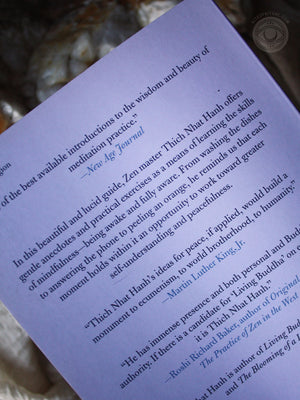 gion
of the best available introductions to the wisdom and beauty of
meditation practice."
—New Age Journal
In this beautiful and lucid guide, Zen master Thich Nhat Hanh offers
gentle anecdotes and practical exercises as a means of learning the skills
of mindfulness—being awake and fully aware. From washing the dishes
to answering the phone to peeling an orange, he reminds us that each
moment holds within it an opportunity to work toward greater
self-understanding and peacefulness.
"Thich Nhat Hanh's ideas for peace, if applied, would build a
monument to ecumenism, to world brotherhood, to humanity."
—Martin Luther King, Jr.
"He has immense presence and both personal and Bud
authority. If there is a candidate for 'Living Buddha' on
it is Thich Nhat Hanh."
—Roshi Richard Baker, author of Original
The Practice of Zen in the West
hat Hanh is author of Living Budd
and The Blooming of a L